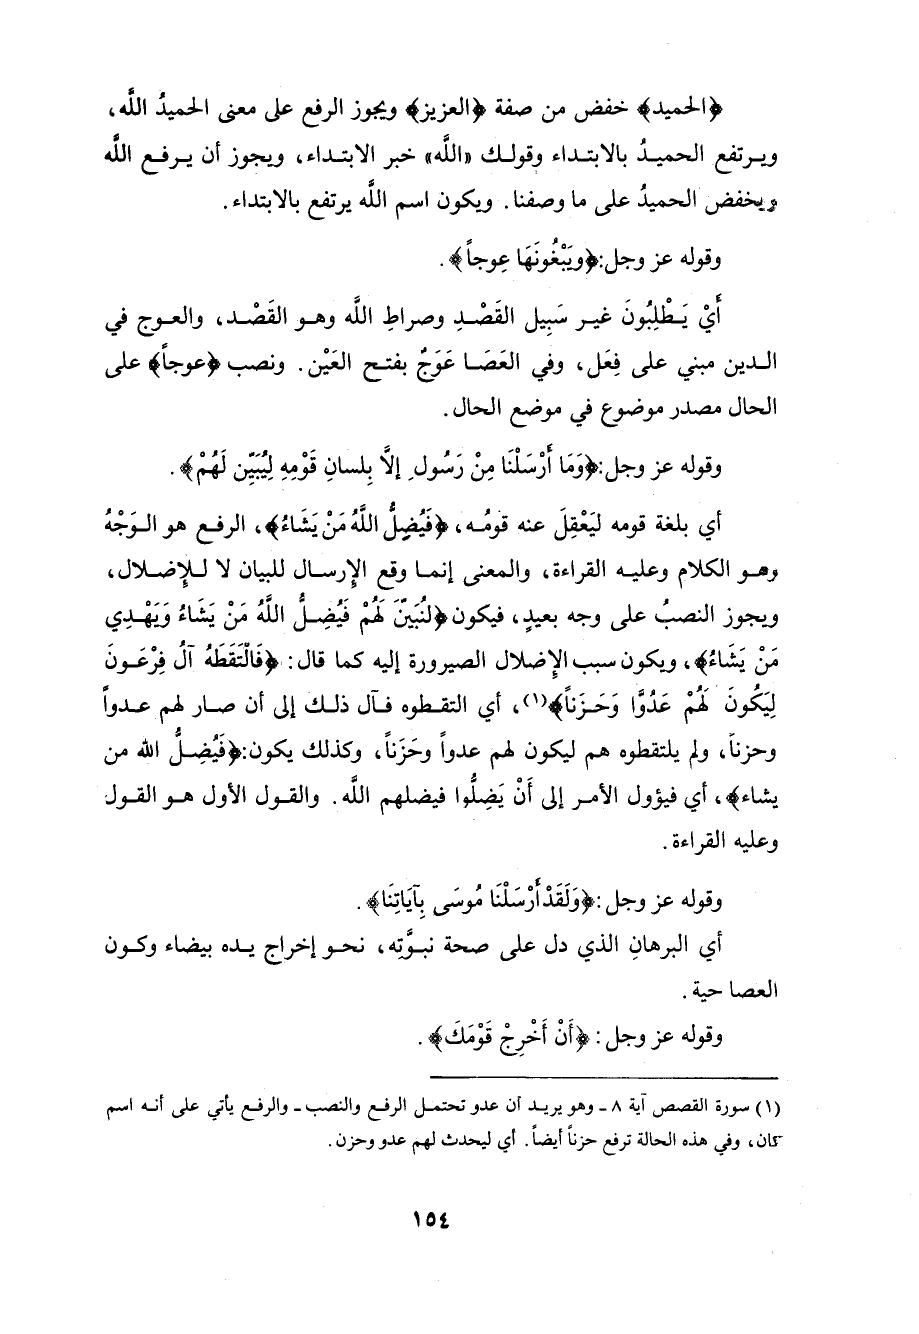 ﴿الحميد﴾ خفض من صفة ﴿العزيز﴾ ويجوز الرفع على معنى الحميدُ اللَّه،
ويرتفع الحميدُ بالابتداء وقولك «اللَّه» خبر الابتداء، ويجوز أن يرفع اللَّه
ويخفض الحميدُ على ما وصفنا. ويكون اسم اللَّه يرتفع بالابتداء.
وقوله عز وجل:﴿ويَبْغُونَهَا عِوجاً﴾.
أَيْ يَطْلِبُونَ غير سَبِيل القَصْدِ وصراطِ اللَّه وهو القَصْد، والعوج في
الدين مبني على فِعَل، وفي العَصَا عَوَجٌ بفتح العَيْن. ونصب ﴿عوجاً﴾ على
الحال مصدر موضوع في موضع الحال.
وقوله عز وجل:﴿وَمَا أَرْسَلْنَا مِنْ رَسُولٍ إلَّا بِلسانِ قَوْمِهِ لِيُبَيِّن لَهُمْ﴾.
أي بلغة قومه ليَعْقِلَ عنه قومُه، ﴿فَيُضِلُّ اللَّهُ مَنْ يَشَاءُ﴾، الرفع هو الوَجْهُ
وهو الكلام وعليه القراءة، والمعنى إنما وقع الإرسال للبيان لا للإضلال،
ويجوز النصبُ على وجه بعيدٍ، فيكون ﴿لنُبَيِّنَ لَهُمْ فَيُضِلَّ اللَّهُ مَنْ يَشَاءُ وَيَهْدِي
مَنْ يَشَاءُ﴾، ويكون سبب الإضلال الصيرورة إليه كما قال: ﴿فَالْتَقَطَهُ آلُ فِرْعَونَ
لِيَكُونَ لَهُمْ عَدُوًّا وَحَزَناً﴾(١)، أي التقطوه فآل ذلك إلى أن صار لهم عدواً
وحزناً، ولم يلتقطوه هم ليكون لهم عدواً وحَزَناً، وكذلك يكون:﴿فَيُضِلُّ الله من
يشاء﴾، أي فيؤول الأمر إلى أَنْ يَضِلُّوا فيضلهم اللَّه. والقول الأول هو القول
وعليه القراءة.
وقوله عز وجل:﴿وَلَقَدْ أَرْسَلْنَا مُوسَى بِآيَاتِنَا﴾.
أي البرهانِ الذي دل على صحة نبوَّتِه، نحو إخراج يده بيضاء وكون
العصا حية.
وقوله عز وجل: ﴿أَنْ أَخْرِجْ قَوْمَكَ﴾.
(١) سورة القصص آية ٨ ـ وهو يريد أن عدو تحتمل الرفع والنصب ـ والرفع يأتي على أنه اسم
كان، وفي هذه الحالة ترفع حزناً أيضاً. أي ليحدث لهم عدو وحزن.
١٥٤